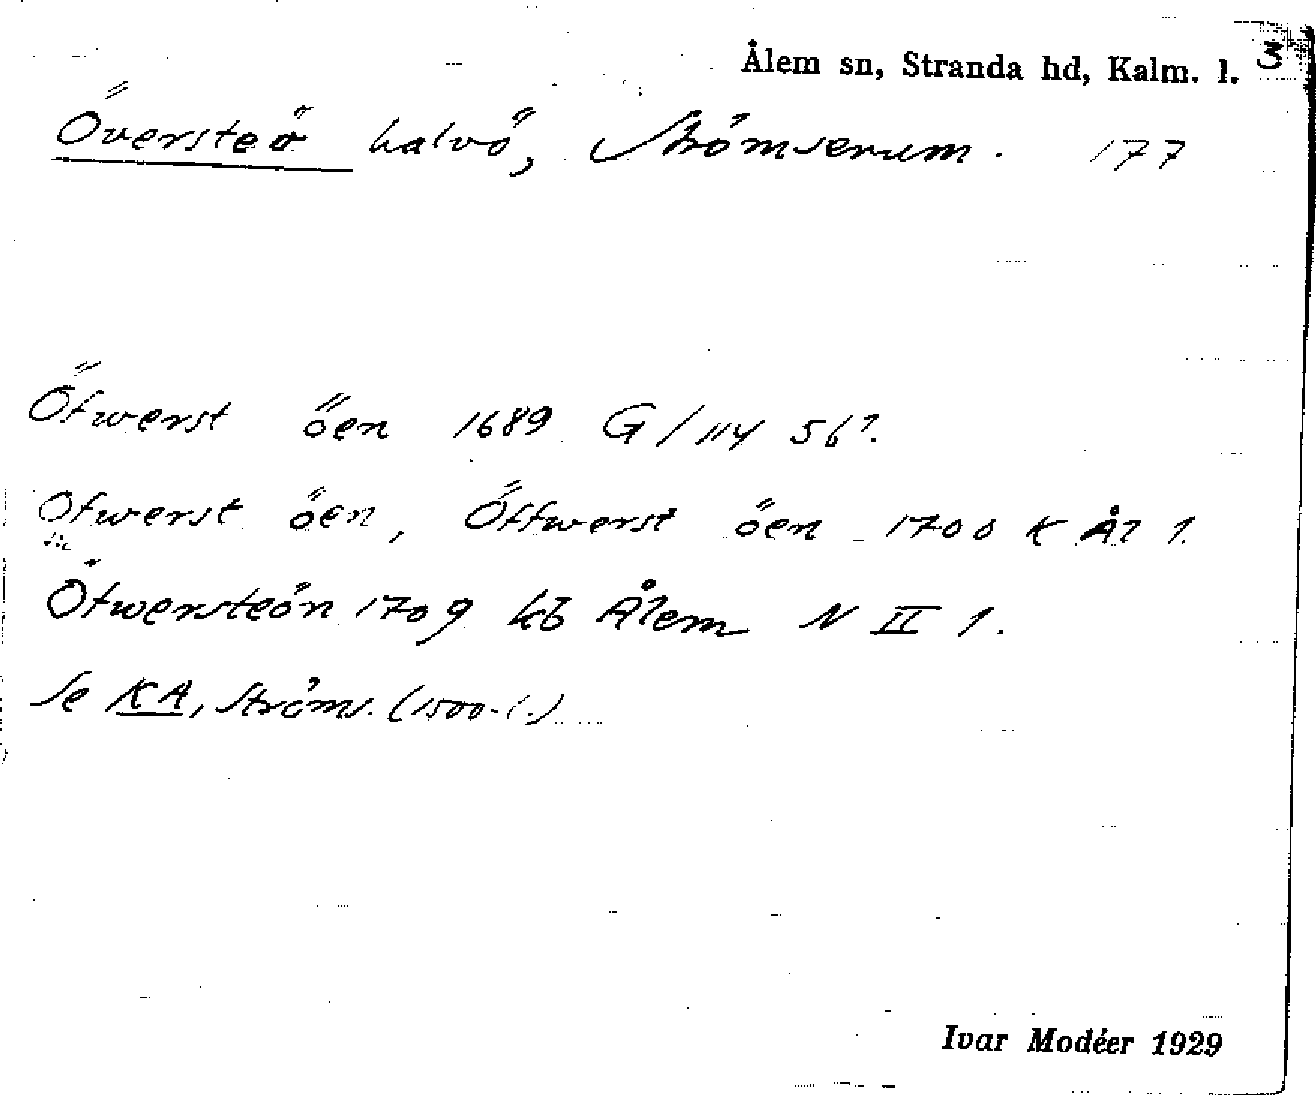 Ålem sn, Stranda hd, Kalm. l. 3
Översteö halvö, Strömserum. 177
Öfwerst öen 1689 G/114 56?.
Ofwerst öen, Öffwerst öen 1700 K Ål 1.
Öfwersteön 1709 kb Ålem N II 1.
Se KA, Ströms. (1500-t.)
Ivar Modéer 1929